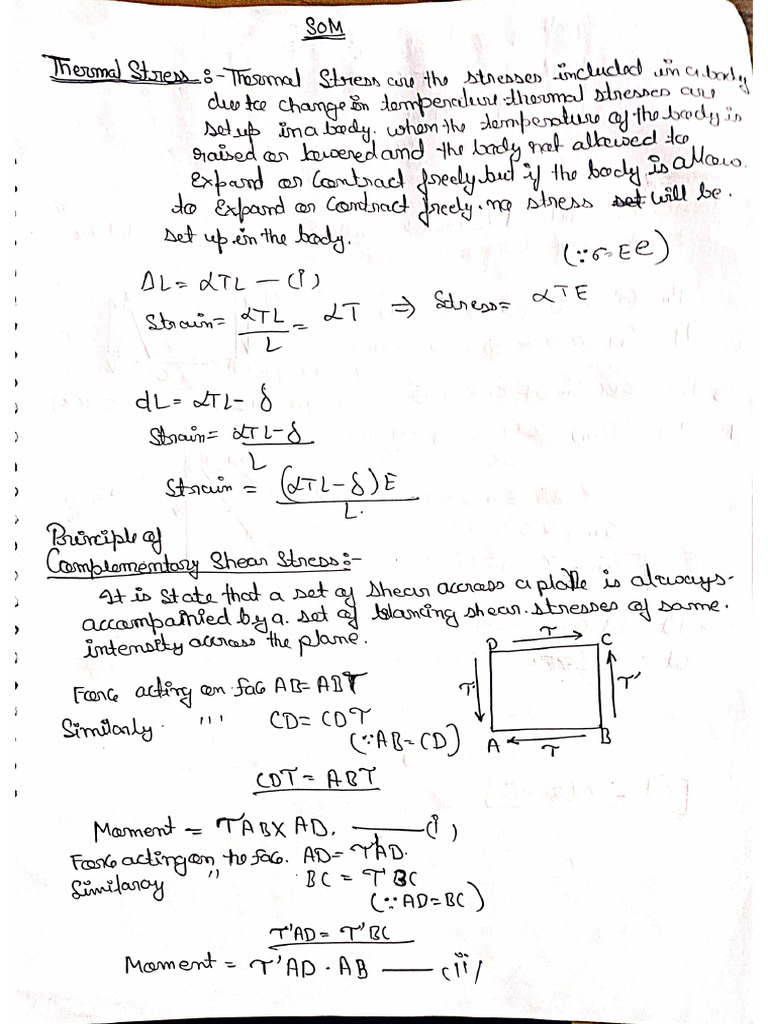 SOM
Thermal Stress :- Thermal Stress are the stresses included in a body
due to change in temperature thermal stresses are
set up in a body. when the temperature of the body is
raised or lowered and the body not allowed to
expand or contract freely but if the body is allow
to expand or contract freely. no stress set will be.
set up in the body.
(∵ σ = E e)
ΔL = αTL — (i)
Strain = αTL/L = αT ⇒ Stress = αTE
dL = αTL - δ
Strain = αTL-δ/L
Strain = (αTL-δ)E/L.
Principle of
Complementory Shear Stress:-
It is state that a set of shear accross a plate is always-
accompainied by a. set of blancing shear. stresses of same.
intensity accross the plane.
D τ C
τ' τ'
A τ B
Force acting on fac AB = ABτ
Similarly. ''' CD = CDτ
(∵ AB = CD)
CDτ = ABτ
Moment = τAB X AD. — (i)
Force acting on the fac. AD = τ'AD.
Similaray '' BC = τ'BC
(∵ AD = BC)
τ'AD = τ'BC
Moment = τ'AD . AB — (ii)